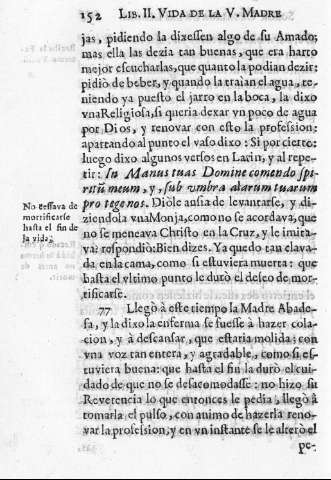 152 LIB. II. VIDA DE LA V. MADRE
jas, pidiendo la dixessen algo de su Amado;
mas ella las dezia tan buenas, que era harto
mejor escucharlas, que quanto la podian dezir:
pidiò de beber, y quando la traìan el agua, te-
niendo ya puesto el jarro en la boca, la dixo
vna Religiosa, si queria dexar vn poco de agua
por Dios, y renovar con esto la profession:
apartando al punto el vaso dixo: Si por cierto:
luego dixo algunos versos en Latin, y al repe-
tir: In Manus tuas Domine comendo spi-
ritũ meum, y, sub vmbra alarum tuarum
pro tege nos. Diòle ausia de levantarse, y di-
ziendola vna Monja, como no se acordava, que
no se meneava Christo en la Cruz, y le imita-
va: respondiò: Bien dizes. Ya quedo tan clava-
da en la cama, como si estuviera muerta: que
hasta el vltimo punto le durò el deseo de mor-
tificarse.
No cessava de
mortificarse
hasta el fin de
la vida;
77 Llegò à este tiempo la Madre Abade-
sa, y la dixo la enferma se fuesse à hazer cola-
cion, y à descansar, que estaria molida: con
vna voz tan entera, y agradable, como si es-
tuviera buena: que hasta el fin la durò el cui-
dado de que no se desacomodasse: no hizo su
Reverencia lo que entonces le pedia, llegò à
tomarla el pulso, con animo de hazerla reno-
var la profession; y en vn instante se le alterò el
pe-